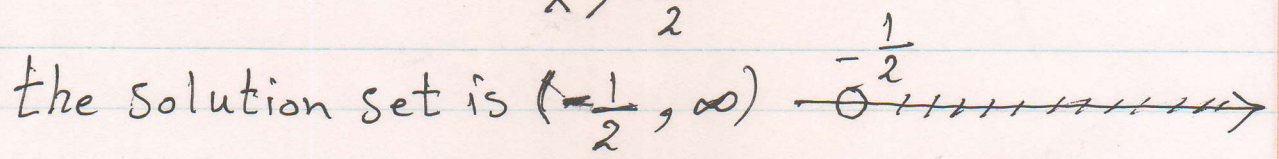 2
the solution set is (-1/2, ∞) -1/2